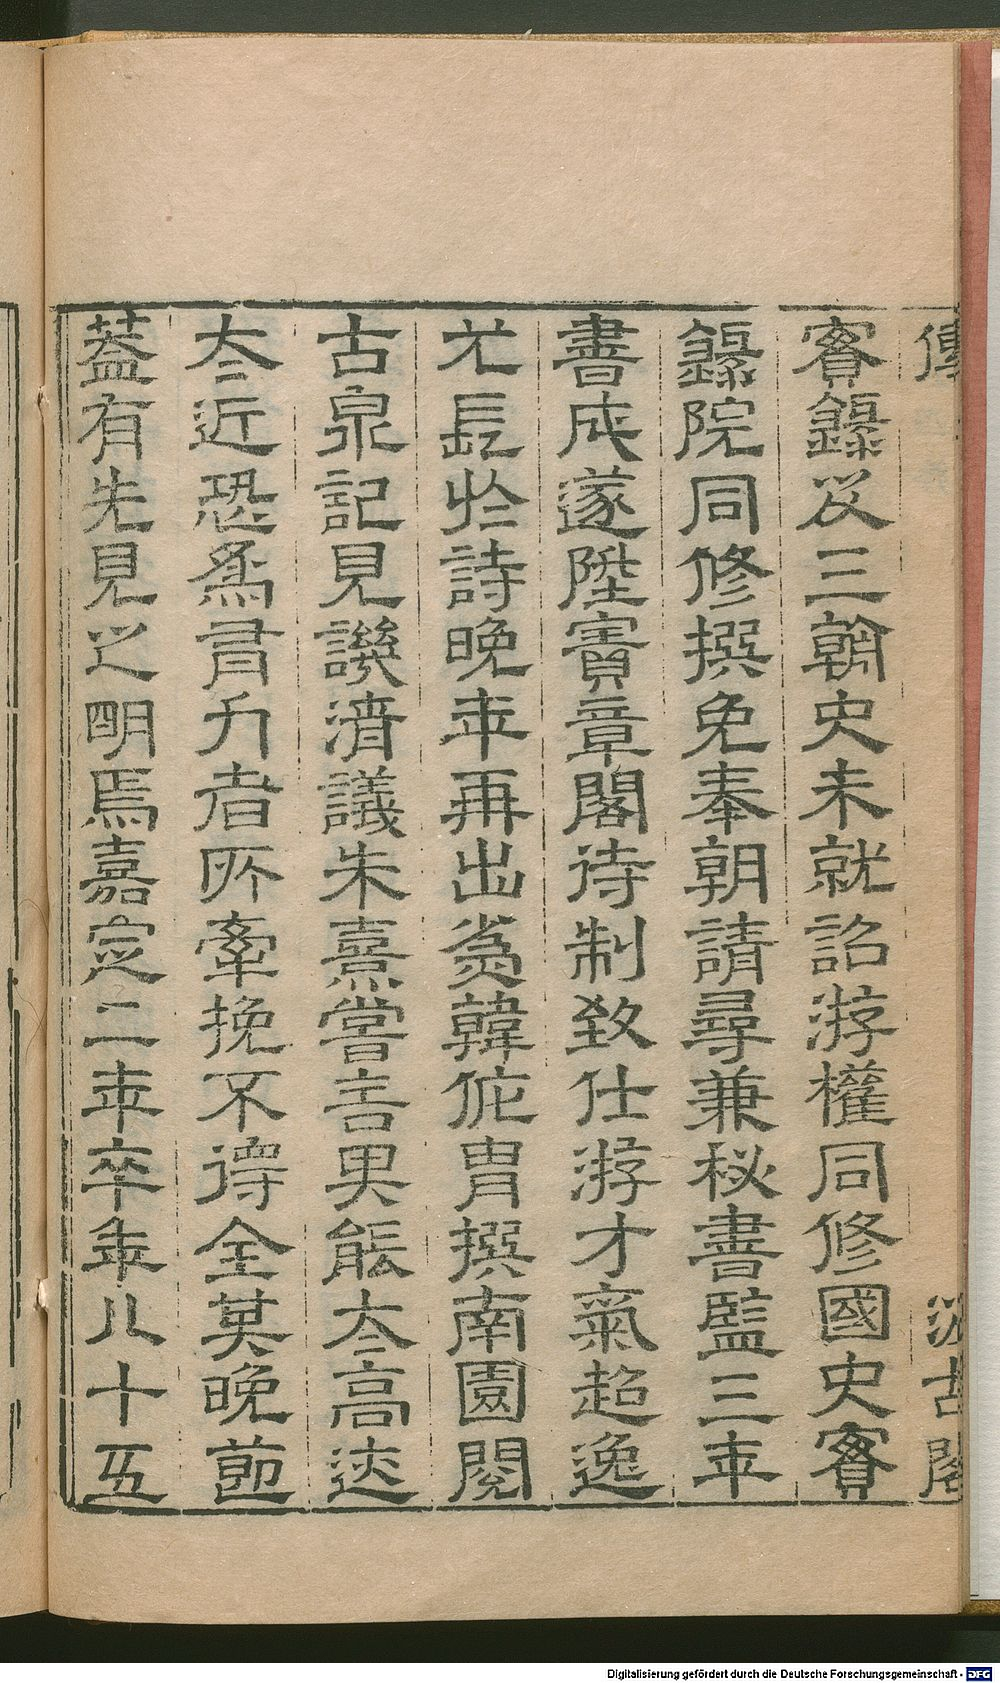 傳
汲古閣
實錄及三朝史未就詔游權同修國史實
錄院同修撰免奉朝請尋兼秘書監三年
書成遂陞寶章閣待制致仕游才氣超逸
尤長於詩晚年再出爲韓侂冑撰南園閱
古泉記見譏清議朱熹嘗言其能太高迹
太近恐爲有力者所牽挽不得全其晚節
蓋有先見之明焉嘉定二年卒年八十五
Digitalisierung gefördert durch die Deutsche Forschungsgemeinschaft - DFG